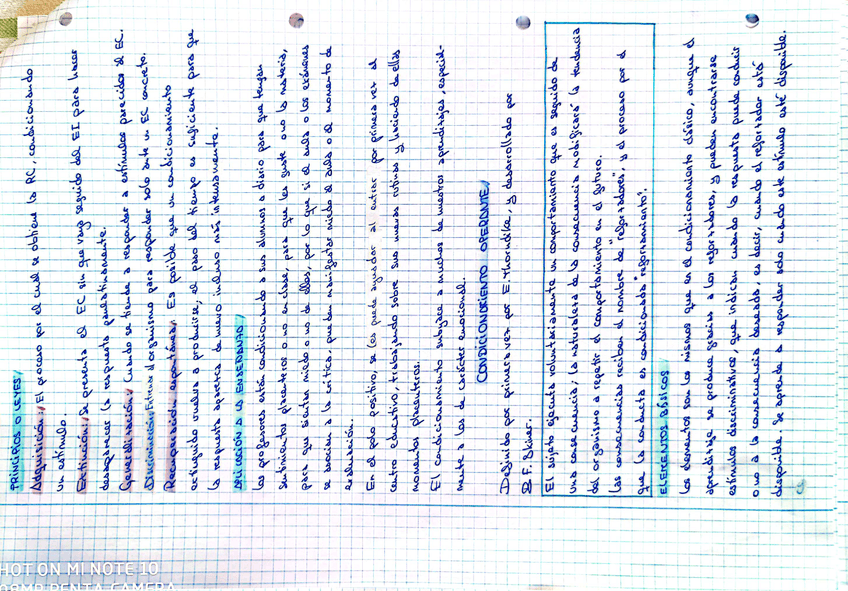 PRINCIPIOS O LEYES
Adquisición: El proceso por el cual se obtiene la RC, condicionando
un estímulo.
Extinción: Se presenta el EC sin que vaya seguido del EI para hacer
desaparecer la respuesta paulatinamente.
Generalización: Cuando se tiende a responder a estímulos parecidos al EC.
Discriminación: Entrena al organismo para responder solo ante un EC concreto.
Recuperación espontánea: Es posible que un condicionamiento
extinguido vuelva a producirse, el paso del tiempo es suficiente para que
la respuesta aparezca de nuevo incluso más intensamente.
APLICACIÓN A LA ENSEÑANZA
Los profesores están condicionando a sus alumnos a diario para que tengan
sentimientos placenteros o no en clase, para que les guste o no la materia,
para que sientan miedo o no de ellos, por lo que si el aula o los exámenes
se asocian a la crítica, pueden manifestar miedo al aula o al momento de
evaluación.
En el polo positivo, se les puede ayudar al entrar por primera vez al
centro Educativo, trabajando sobre sus nuevas rutinas y haciendo de ellas
momentos placenteros.
El condicionamiento subyace a muchos de nuestros aprendizajes, especial-
mente a los de carácter emocional.
CONDICIONAMIENTO OPERANTE
Definido por primera vez por E. Thorndike, y desarrollado por
B.F. Skiner.
El sujeto ejecuta voluntariamente un comportamiento que es seguido de
una consecuencia, la naturaleza de la consecuencia modificará la tendencia
del organismo a repetir el comportamiento en el futuro.
Las consecuencias reciben el nombre de "reforzadores" y el proceso por el
que la conducta es condicionada "reforzamiento".
ELEMENTOS BÁSICOS
Los elementos son los mismos que en el condicionamiento clásico, aunque el
aprendizaje se produce gracias a los reforzadores, y pueden encontrarse
estímulos discriminativos, que indican cuando la respuesta puede conducir
o no a la consecuencia deseada, es decir, cuando el reforzador está
disponible. Se aprende a responder solo cuando este estímulo esté disponible.
SHOT ON MI NOTE 10
108MP PENTA CAMERA